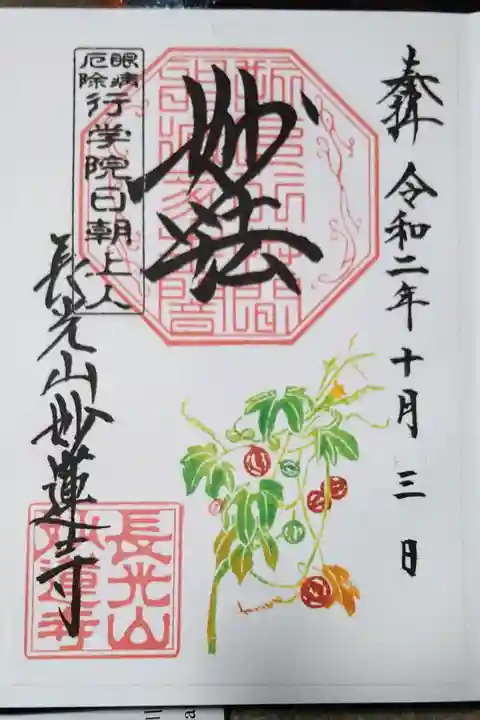 奉拝 令和二年十月三日
妙法
眼病
厄除
行学院日朝上人
長光山妙蓮寺
長光山
妙蓮寺